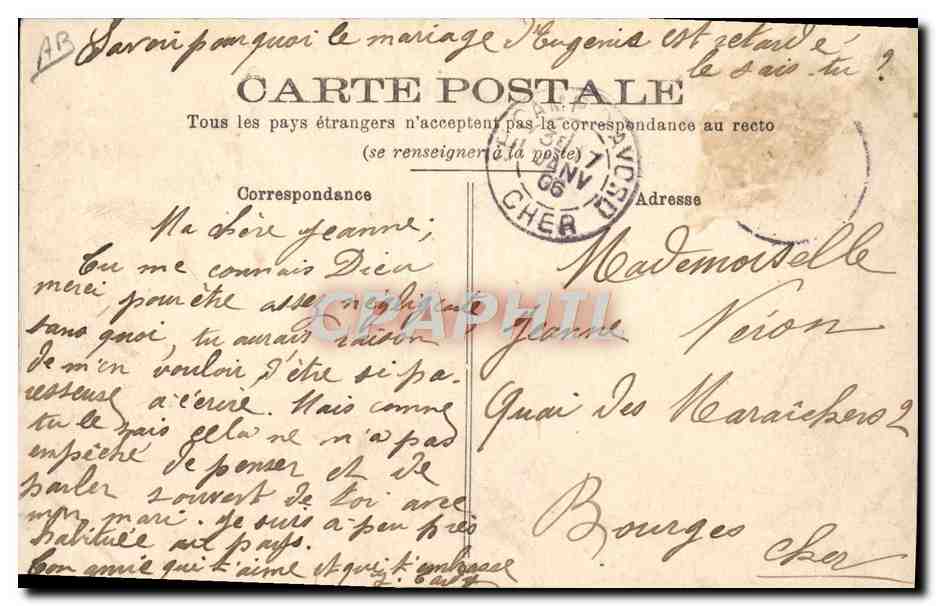 AB
Savoir pourquoi le mariage d'Eugenie est retardé
le sais-tu?
CARTE POSTALE
Tous les pays étrangers n'acceptent pas la correspondance au recto
(se renseigner à la poste)
Correspondance
Ma chère Jeanne,
Tu me connais Dieu
merci, pour être assez négligente
sans quoi, tu aurais raison
de m'en vouloir, d'être si pa-
resseuse à t'écrire. Mais comme
tu le sais cela ne m'a pas
empêché de penser et de
parler souvent de toi avec
mon mari. Je suis à peu près
habituée au pays.
Ton amie qui t'aime et qui t'embrasse
7
JANV
06
CHER
Adresse
Mademoiselle
Jeanne Néron
Quai des Maraîchers 2
Bourges
Cher
CPAPHIL